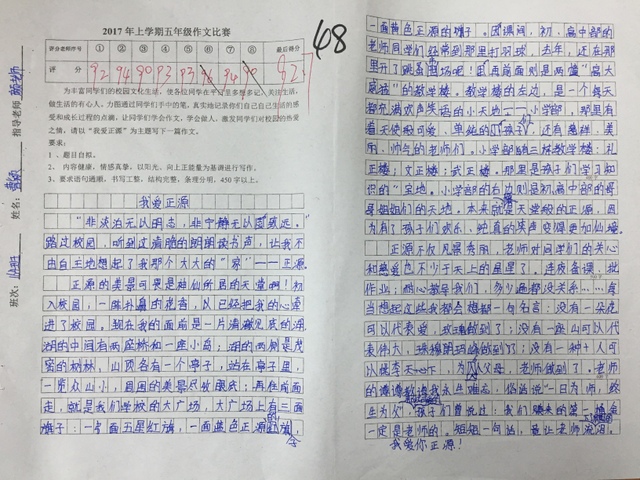 2017 年上学期五年级作文比赛
评分老师序号 ① ② ③ ④ ⑤ ⑥ ⑦ ⑧ 最后得分
评 分 92 94 90 93 92
48
为丰富同学们的校园文化生活，使各位同学在平日里多想多记、关注生活，
做生活的有心人，力图通过同学们手中的笔，真实地记录你们自己自己生活的感
受和成长过程的点滴，让同学们学会作文，学会做人，激发同学们对校园的热爱
之情，请以“我爱正源”为主题写下一篇作文。
要求：
1、题目自拟。
2、内容健康，情感真挚，以阳光、向上正能量为基调进行写作。
3、要求语句通顺，书写工整，结构完整，条理分明，450 字以上。
指导老师
姓名：
班次：
我爱正源
“非淡泊无以明志，非宁静无以致远。”
路过校园，听到这清脆的朗朗读书声，让我不
由自主地想起了我那个大大的“家”——正源
正源的美是可畏是神仙所居的天堂啊！初
入校园，一阵扑鼻的花香，以已经把我的心牵
进了校园。现在我的面前是一片清澈见底的湖
湖的中间有两座桥和一座小岛，湖的两侧是茂
密的树林，山顶各有一个亭子，站在亭子里，
一览众山小，园的美景尽收眼底；再往前面
走，就是我们学校的大广场，大广场上有三面
旗子：一面五星红旗，一面蓝色正源的旗，
一面黄色正源的旗子。下课间，初、高中部的
老师同学们经常到那里打羽球，去年，还在那
里开了跳蚤市场呢！再前面则是两幢“高大
威猛”的教学楼。教学楼的左边，是一个每天
都充满欢声笑语的小天地——小学部，那里有
着天使般可爱、单纯的孩子，还有慈祥、美
丽、帅气的老师们。小学部有三栋教学楼：礼
正楼；文正楼；武正楼。那里是孩子们学习知
识的“宝地。小学部的右边则是初、高中部的哥
哥姐姐们的天地。本来就是天堂般的正源，因
为有了孩子们欢乐、纯真的笑声变得更加仙境
正源不仅风景秀丽，老师对同学们的关心
和慈爱也不少于天上的星星了。连夜备课，批
作业；热心教导我们，多少遍都没关系……每
当想起这些我都会想起一句名言：没有一朵花
可以代表爱，玫瑰做到了；没有一座山可以代
表伟大，珠穆朗玛峰做到了；没有一种人可
以桃李天下，为人父母，老师做到了。老师
的谆谆教诲我永生难忘。俗话说“一日为师，终
生为父”，孩子们曾说过：我们赚来的第一
一定是老师的。短短一句话，竟让老师流泪。
我爱你正源！